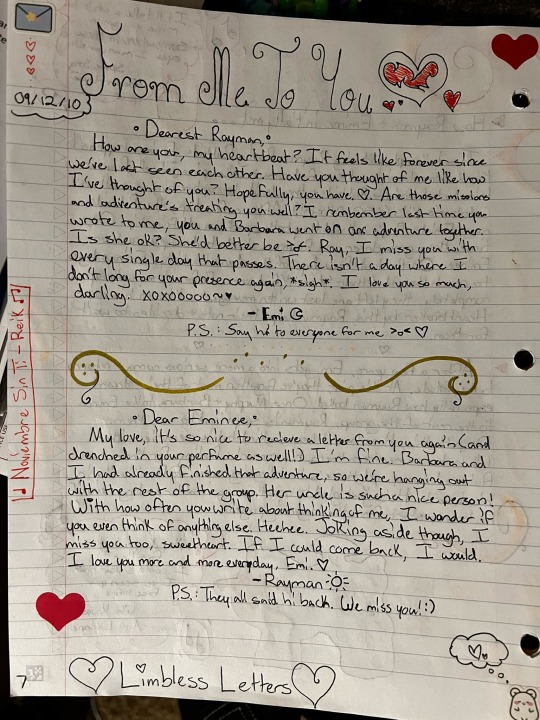 From Me To You
09/12/10
• Dearest Rayman, •
How are you, my heartbeat? It feels like forever since
we've last seen each other. Have you thought of me like how
I've thought of you? Hopefully, you have ♡. Are those missions
and adventure's treating you well? I rember last time you
wrote to me, you and Barbara went on an adventure together.
Is she ok? She'd better be >o<. Ray, I miss you with
every single day that passes. There isn't a day where I
don't long for your presence again, *sigh*. I love you so much,
darling. xoxooooo~♥
- Emi ☾
P.S.: Say hi to everyone for me >o< ♡
♫ Noviembre Sin Ti - Reik ♫
• Dear Eminee, •
My love, it's so nice to recieve a letter from you again (and
drenched in your perfume as well!) I'm fine! Barbara and
I had already finished that adventure, so we're hanging out
with the rest of the group. Her uncle is such a nice person!
With how often you write about thinking of me, I wonder if
you even think of anything else. Heehee. Joking aside though, I
miss you too, sweetheart. If I could come back, I would.
I love you more and more everyday, Emi. ♡
- Rayman ☼
P.S.: They all said hi back. We miss you! :)
7
♡ Limbless Letters ♡